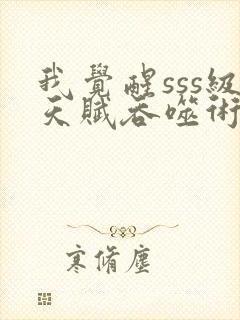 我覺醒sss級
天賦吞噬術
寒脩塵